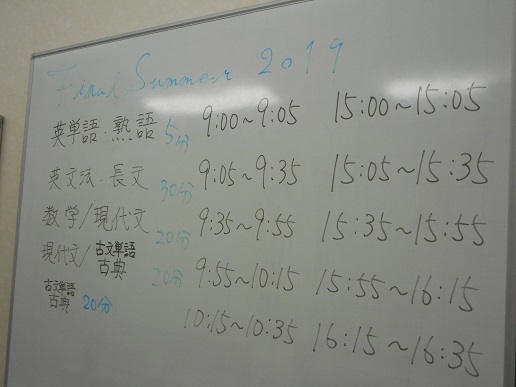 Final Summer 2019
英単語・熟語 5分 9:00~9:05 15:00~15:05
英文法・長文 30分 9:05~9:35 15:05~15:35
数学/現代文 20分 9:35~9:55 15:35~15:55
現代文/古文単語 古典 20分 9:55~10:15 15:55~16:15
古文単語 古典 20分 10:15~10:35 16:15~16:35